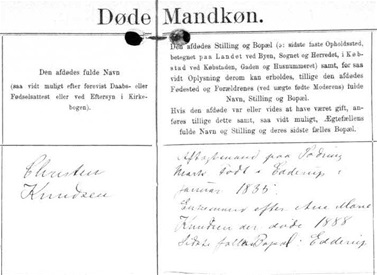 Døde Mandkøn.
Den afdødes fulde Navn
(saa vidt muligt efter forevist Daabs- eller
Fødselsattest eller ved Eftersyn i Kirke-
bogen).
Den afdødes Stilling og Bopæl (ɔ: sidste faste Opholdssted,
betegnet paa Landet ved Byen, Sognet og Herredet, i Køb-
stad ved Købstaden, Gaden og Husnummeret) samt, for saa
vidt Oplysning derom kan erholdes, tillige den afdødes
Fødested og Forældrenes (ved uægte fødte Moderens) fulde
Navn, Stilling og Bopæl.
Hvis den afdøde var eller vides at have været gift, an-
føres tillige dette samt, saa vidt muligt, Ægtefællens
fulde Navn og Stilling og deres sidste fælles Bopæl.
Christen
Knudsen
Aftægtsmand paa
Mark født i Edderup i
januar 1835.
Enkemand efter Ane Marie
Knudsen der døde 1888
Sidste fælles Bopæl: Edderup